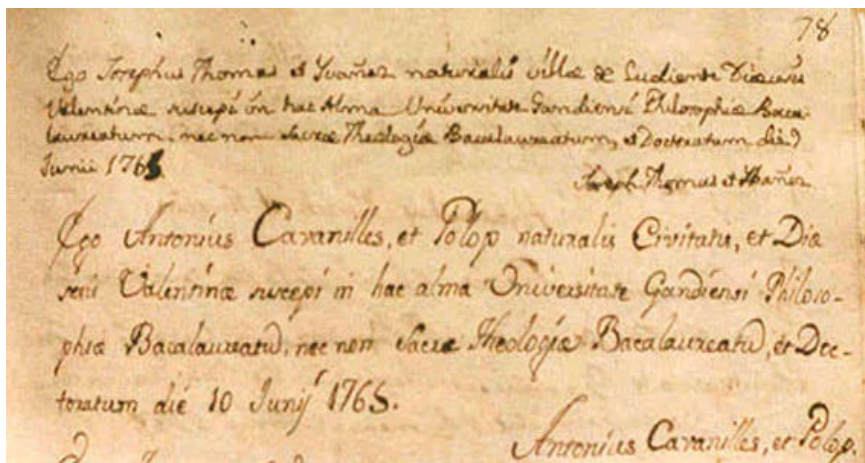 78
Ego Josephus Thomas et Yvañez naturalis villæ de Ludiente Diæcesis
Valentinæ suscepi in hac Alma Universitate Gandiensi Philosophiæ Baca
laureatum, nec non Sacræ Theologiæ Bacalaureatum, et Doctoratum die 9
Junii 1765
Joseph Thomas et Ybañez
Ego Antonius Cavanilles, et Polop naturalis Civitatis, et Diæ
sesis Valentinæ suscepi in hac alma Universitate Gandiensi Philoso-
phiæ Bacalaureatũ, nec non Sacræ Theologiæ Bacalaureatũ, et Doc-
toratum die 10 Junij 1765.
Antonius Cavanilles, et Polop.